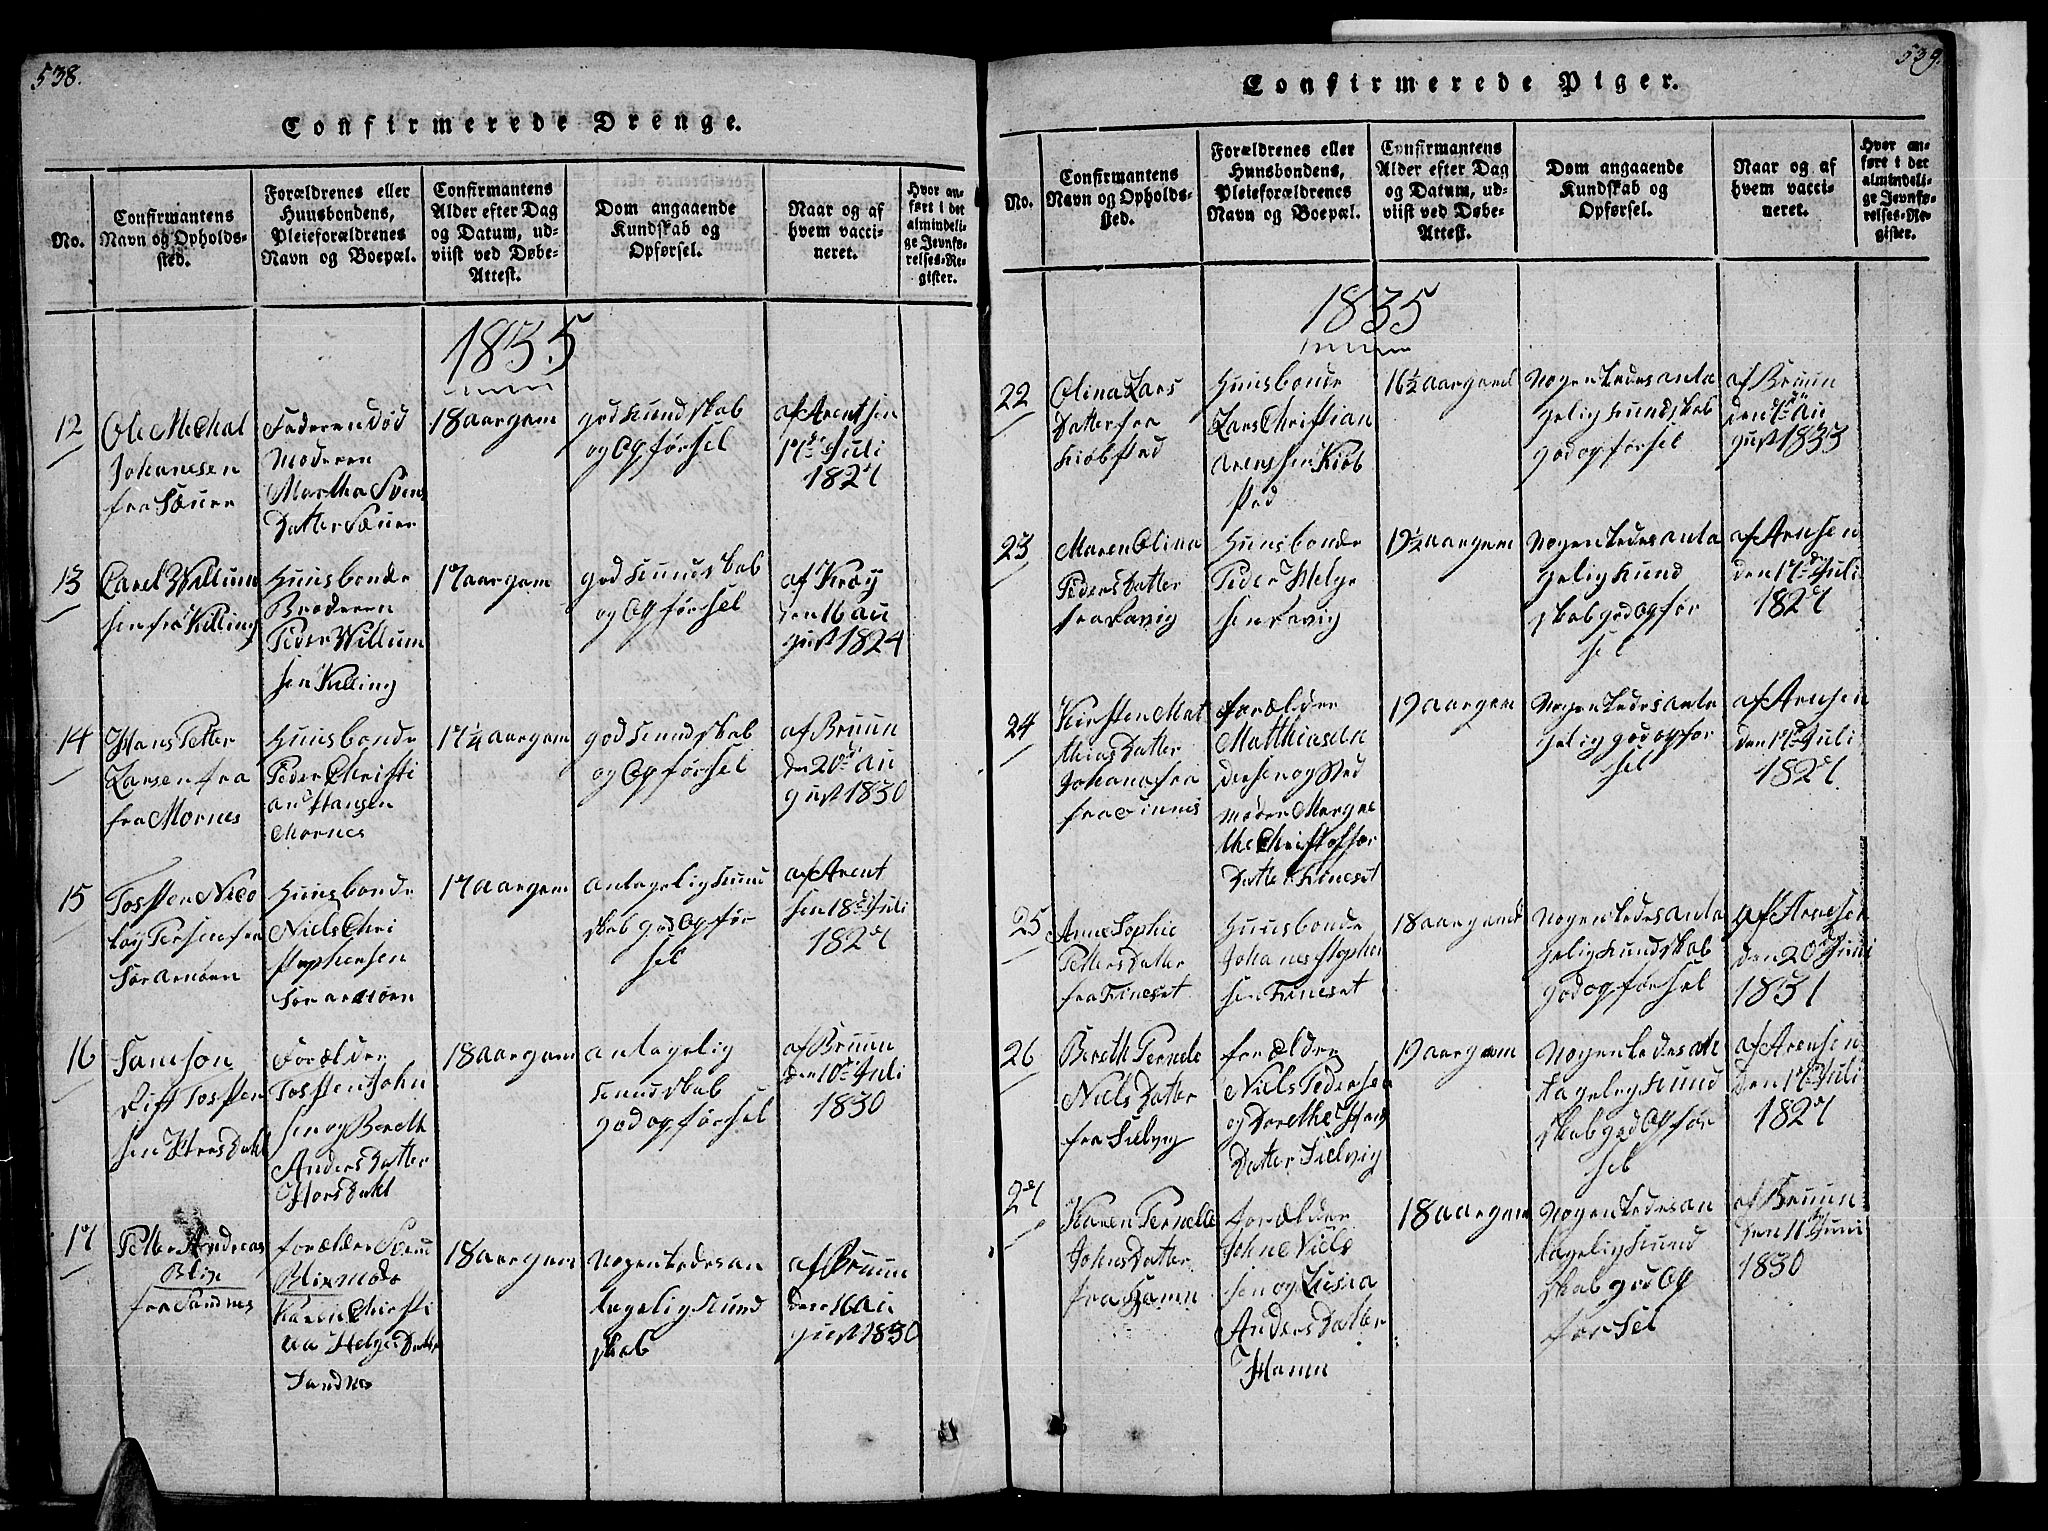 538.
Confirmerede Drenge.
No.
Confirmantens
Navn og Opholds-
sted.
Forældrenes eller
Huusbondens,
Pleieforældrenes
Navn og Boepæl.
Confirmantens
Alder efter Dag
og Datum, ud-
viist ved Døbe-
Attest.
Dom angaaende
Kundskab og
Opførsel.
Naar og af
hvem vacci-
neret.
Hvor an-
ført i det
almindeli-
ge Jevnfø-
relses-Re-
gister.
1835
12
Ole Michal
Johanesen
fra Sæuer
Faderen død
Moderen
Martha Svens
Datter Sæuer
18 aar gam
god Kundskab
og Opførsel
af Arentsen
17de Juli
1827
13
Carel Willum
sen fra Killing
Huusbonde
Broderen
Peder Willum
sen Killing
17 aar gam
god Kundskab
og Opførsel
af Krøy
den 16 au
gust 1824
14
Hans Petter
Larsen fra
fra Mornes
Huusbonde
Peder Christi
an Hansen
Mornes
17 1/4 aar gam
god Kundskab
og Opførsel
af Bruun
den 20de au
gust 1830
15
Tosten Nico
lay Persen fra
Sør arnøen
Huusbonde
Niels Chri
stophersen
Sør arnøen
17 aar gam
antagelig Kund
skab god Opfør
sel
af Arent
sen 18de Juli
1827
16
Samson
Tosten
sen Horsdahl
Forælder
Tosten John
sen og Bereth
Anders Datter
Horsdahl
18 aar gam
antagelig
Kundskab
god opførsel
af Bruun
den 10de Juli
1830
17
Petter Andreas
Blix
fra Sandnes
forælder
Blix
Karen Christi
na Helge Datter
Sandnes
18 aar gam
Nogenledes an
tagelig Kund
skab
af Bruun
den 16 au
gust 1830
539.
Confirmerede Piger.
No.
Confirmantens
Navn og Opholds-
sted.
Forældrenes eller
Huusbondens,
Pleieforældrenes
Navn og Boepæl.
Confirmantens
Alder efter Dag
og Datum, ud-
viist ved Døbe-
Attest.
Dom angaaende
Kundskab og
Opførsel.
Naar og af
hvem vacci-
neret.
Hvor an-
ført i det
almindeli-
ge Jevnfø-
relses-Re-
gister.
1835
22
Olina Lars
Datter fra
Kiøbsted
Huusbonde
Lars Christian
Kiøb
sted
16 1/2 aar gamel
Nogenledes anta
gelig Kundskab
god opførsel
af Bruun
den 1de au
gust 1833
23
Maren Olina
Peders Datter
Huusbonde
Peder Helge
sen
19 1/2 aar gam
Nogenledes anta
gelig Kund
skab god Opfør
sel
af Arensen
den 17de Juli
1827
24
Kirsten Mat
thias Datter
Johana fra
forælder
Matthias An
dersen og Sted
moder Margre
the Christoffer
Datter Fineset
19 aar gam
Nogenledes anta
gelig god opfør
sel
af Arensen
den 17de Juli
1827
25
Anne Sophie
Petters Datter
fra Fineset
Huusbonde
Johanes Stophen
sen Fineset
18 aar gamel
Nogenledes anta
gelig Kundskab
god opførsel
af Arensen
den 20de Juni
1831
26
Bereth Pernele
Niels Datter
fra Sielvig
forælder
Niels Pedersen
og Dorethe Hans
Datter Sielvig
19 aar gam
Nogenledes an
tageleg Kund
skab god Opfør
sel
af Arensen
den 17de Juli
1827
27
Karen Pernelle
Johns Datter
fra Hamn
forælder
John Niels
sen og
Anders Datter
Hamn
18 aar gam
Nogenledes an
tagelig Kund
skab god Op
førsel
af Bruun
den 11te Juni
1830